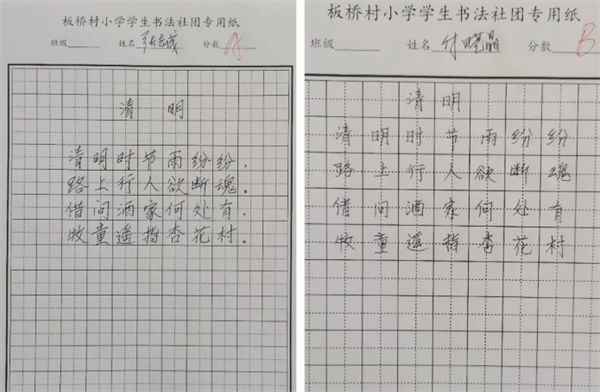 板桥村小学学生书法社团专用纸
班级 姓名 分数 A
清明
清明时节雨纷纷,
路上行人欲断魂。
借问酒家何处有,
牧童遥指杏花村。
板桥村小学学生书法社团专用纸
班级 姓名 付晓晶 分数 B
清明
清明时节雨纷纷
路上行人欲断魂
借问酒家何处有
牧童遥指杏花村